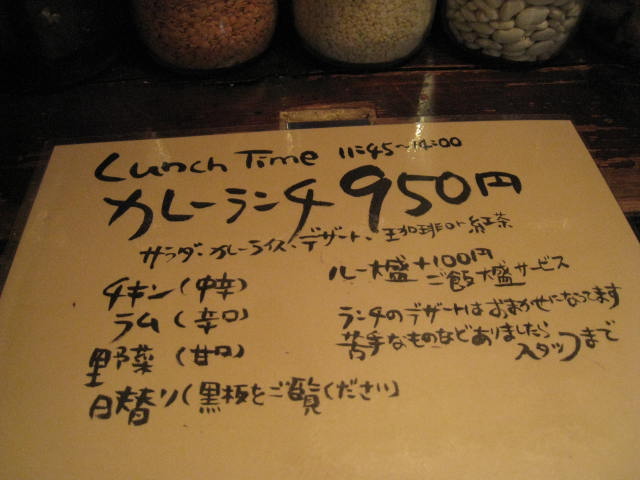 Lunch Time 11:45~14:00
カレーランチ 950円
サラダ、カレーライス、デザート、珈琲or紅茶
チキン(中辛)
ラム(辛口)
野菜(甘口)
日替り(黒板をご覧ください)
ルー大盛+100円
ご飯大盛サービス
ランチのデザートはおまかせになってます
苦手なものなどありましたら
スタッフまで